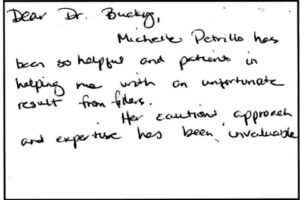 Dear Dr. Bucky,
Michelle Petrillo has
been so helpful and patient in
helping me with an unfortunate
result from fillers.
Her cautious approach
and expertise has been invaluable